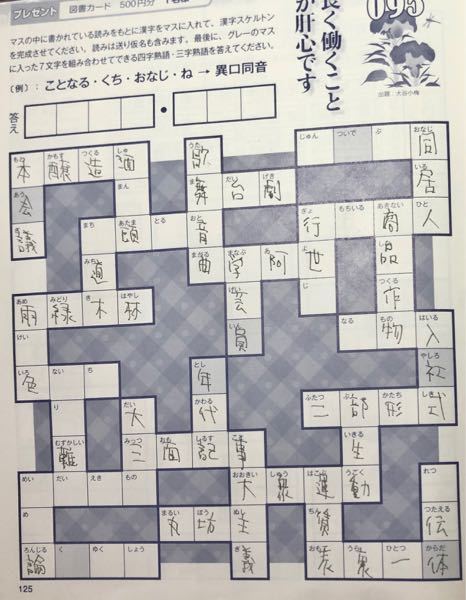 プレゼント 図書カード 500円分
095
出題/大谷小梅
良く働くこと
が肝心です
マスの中に書かれている読みをもとに漢字をマスに入れて、漢字スケルトン
を完成させてください。読みは送り仮名も含みます。最後に、グレーのマス
に入った7文字を組み合わせてできる四字熟語・三字熟語を答えてください。
(例):ことなる・くち・おなじ・ね→異口同音
答え
じゅん ついで ぶ おなじ 同
もち 本 かもす 醸 つくる 造 しゅ 酒 うた 歌 いる 居
あう 会 まん ま 舞 だい 台 げき 劇
ぎ 議 まち あたま 頭 とる おと 音 ぎょ 行 もちいる あきない 商 ひと 人
みち 道 まがる 曲 まなぶ 学 あ 阿 よ 世 しな 品
あめ 雨 みどり 緑 き 木 はやし 林 かい 会 じ つくる 作
けい いん 員 なる もの 物 はいる 入
いろ 色 ない ち とし 年 やしろ 社
り だい 大 かわる 代 ふたつ 二 ぶ 部 かたち 形 しき 式
むずかしい 難 みっつ 三 おも 面 しるす 記 事 いきる 生
めい だい えき もの おおきい 大 しゅう 衆 はこぶ 運 うごく 動 れつ
め まるい 丸 ぼう 坊 ぬし 主 ちん 賃 つたえる 伝
ろんじる 論 く ゆく しょう ぎ 義 おもて 表 うら 裏 ひとつ 一 からだ 体
125